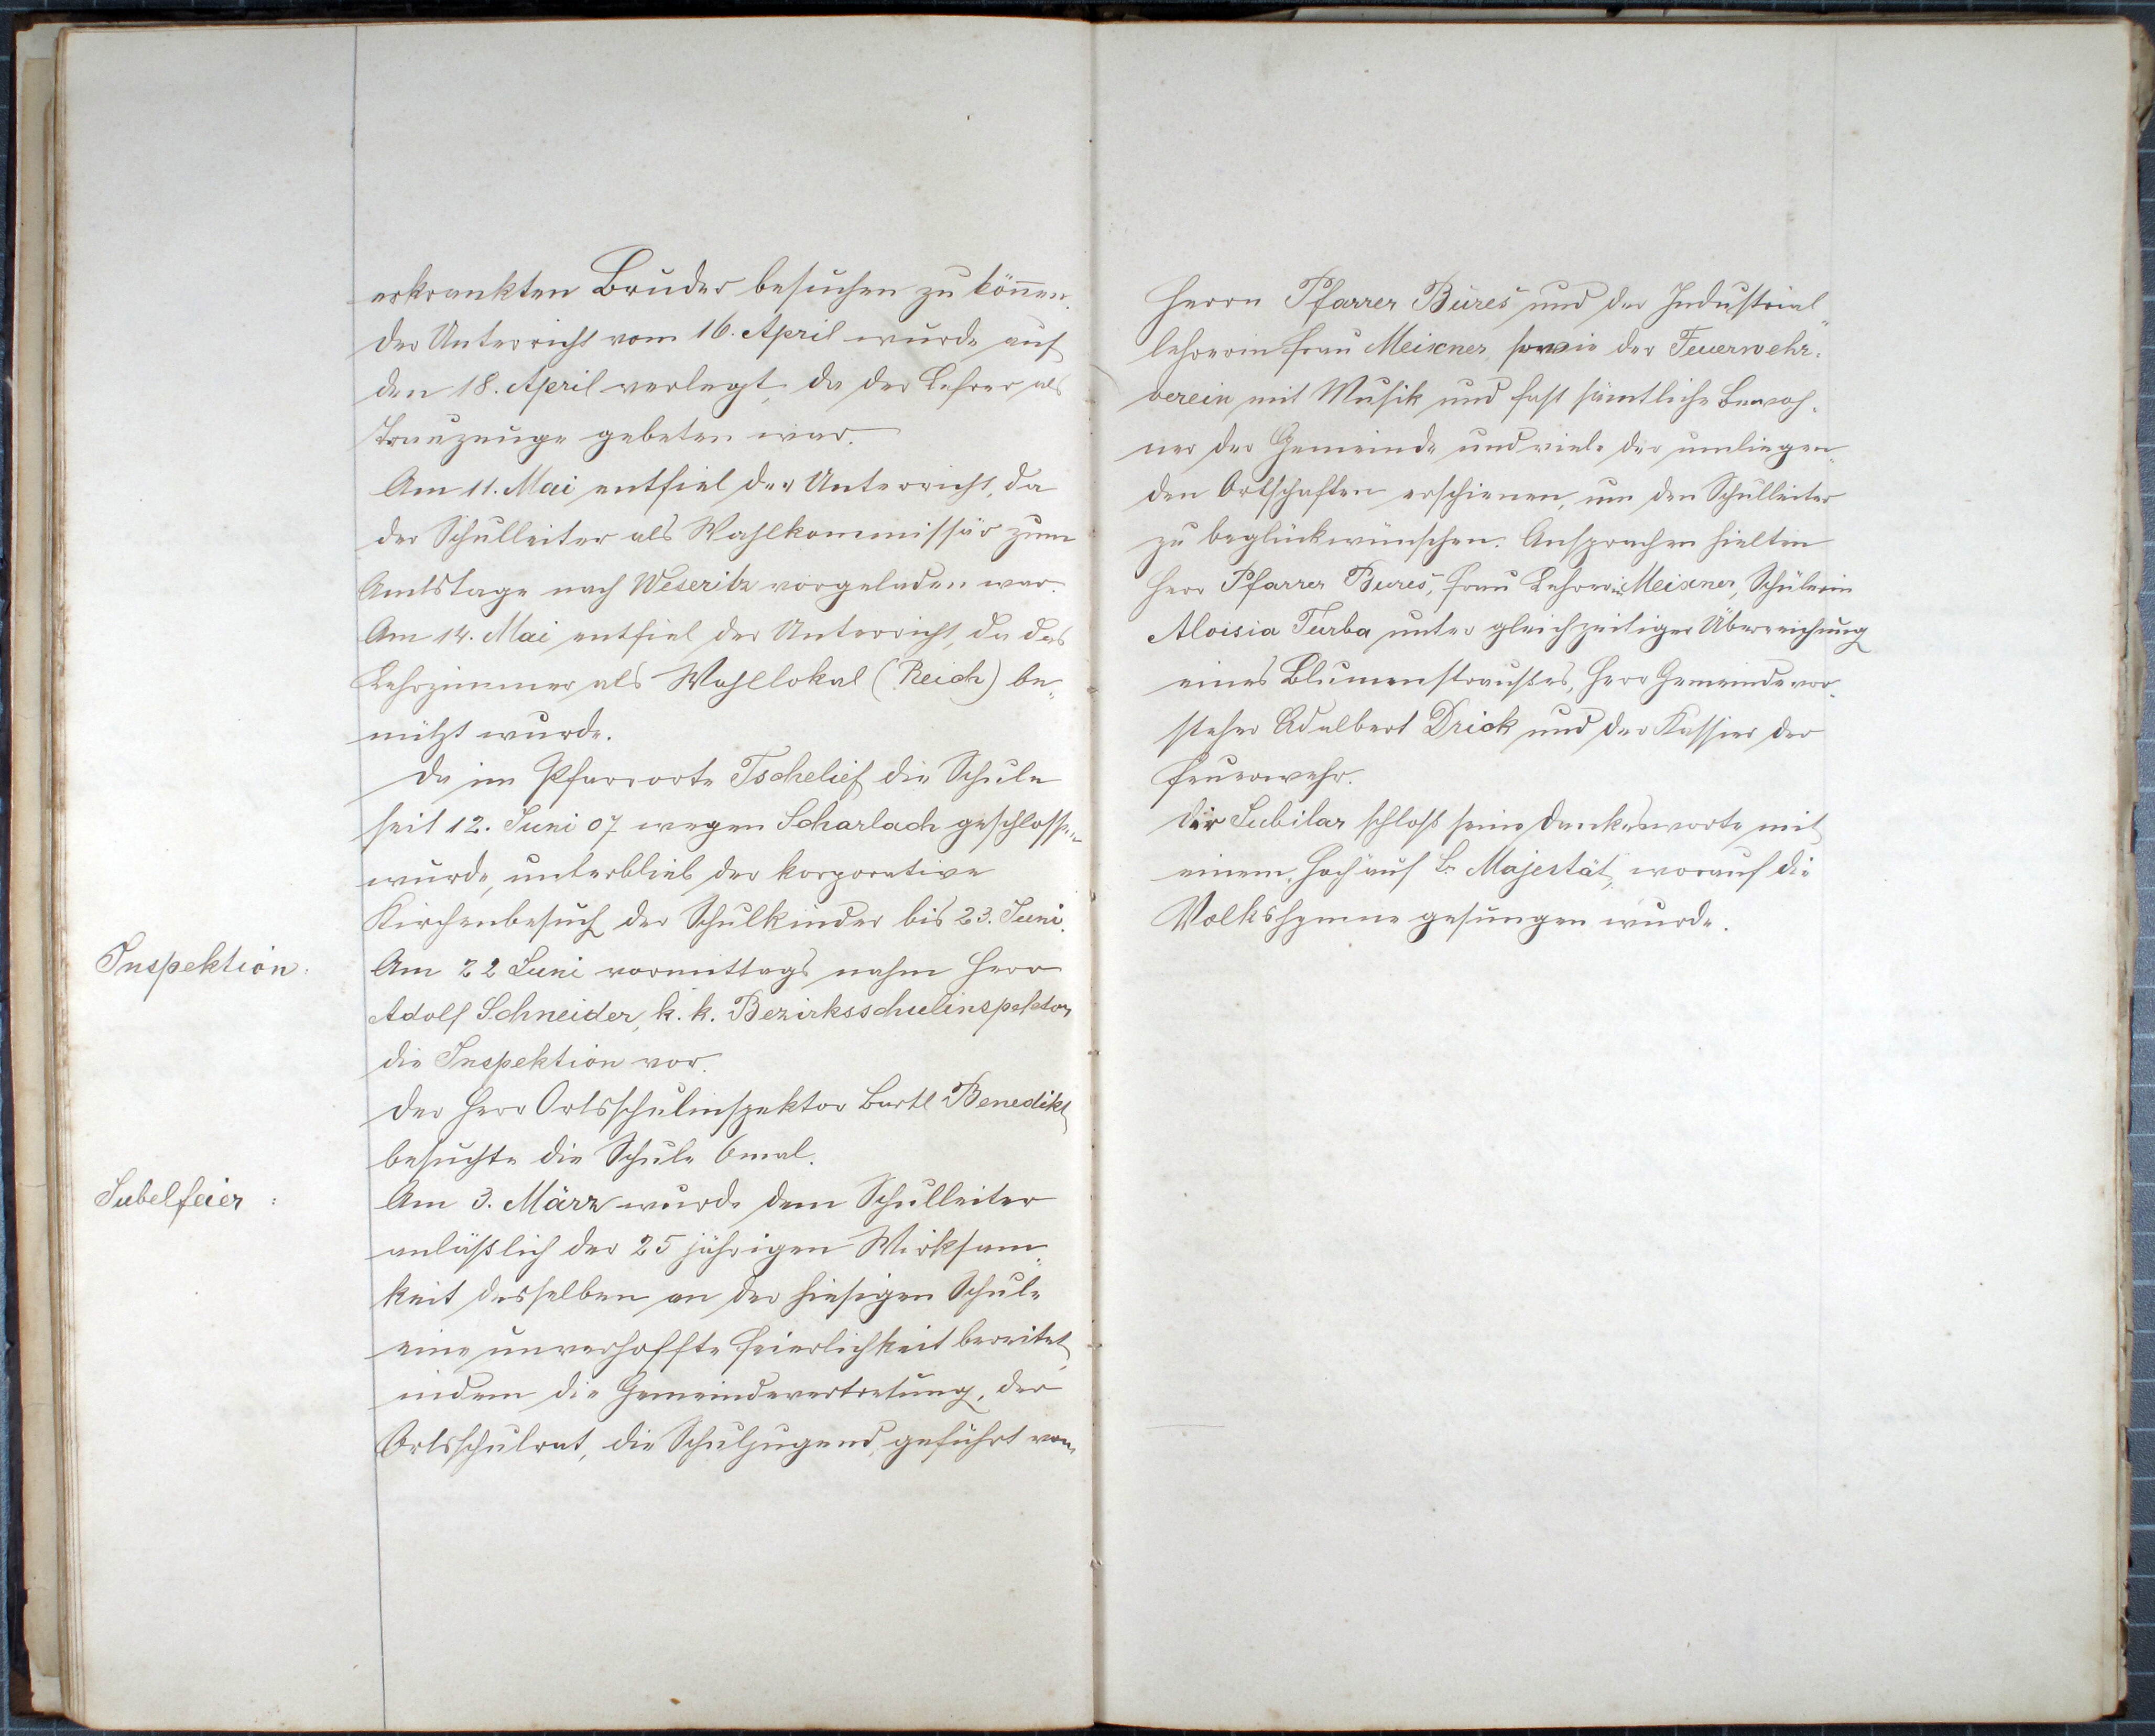 erkrankten Bruder besuchen zu können.
Der Unterricht vom 16. April wurde auf
den 18. April verlegt, da der Lehrer als
Trauzeuge gebeten war.
Am 11. Mai entfiel der Unterricht, da
der Schulleiter als Wahlkommissär zum
Amtstage nach Weseritz vorgeladen war.
Am 14. Mai entfiel der Unterricht, da das
Lehrzimmer als Wahllokal (Reich) be„
nützt wurde.
Da im Pfarrorte Tschelief die Schule
seit 12. Juni 07 wegen Scharlach geschlossen
wurde, unterblieb der korporative
Kirchenbesuch der Schulkinder bis 23. Juni.
Inspektion:
Am 22 Juni vormittags nahm Herr
Adolf Schneider, k. k. Bezirksschulinspektor
die Inspektion vor.
Der Herr Ortsschulinspektor Bartl Benedikt
besuchte die Schule 6mal.
Jubelfeier:
Am 3. März wurde dem Schulleiter
anläßlich der 25 jährigen Wirksam„
keit desselben an der hiesigen Schule
eine unverhoffte Feierlichkeit bereitet,
indem die Gemeindevertretung, der
Ortsschulrat, die Schuljugend, geführt vom
Herrn Pfarrer Bureš und der Industrial„
lehrerin Frau Meixner sowie der Feuerwehr-
verein mit Musik und fast sämtliche Bewoh-
ner der Gemeinde und viele der umliegen„
den Ortschaften erschienen, um den Schulleiter
zu beglückwünschen. Ansprachen hielten
Herr Pfarrer Bureš, Frau Lehrerin Meixner, Schülerin
Aloisia Turba unter gleichzeitiger Überreichung
eines Blumenstraußes, Herr Gemeindevor-
steher Adalbert Drick und der Kassier der
Feuerwehr.
Der Jubilar schloß seine Dankesworte mit
einem „Hoch auf Sr. Majestät“, worauf die
Volkshymne gesungen wurde.